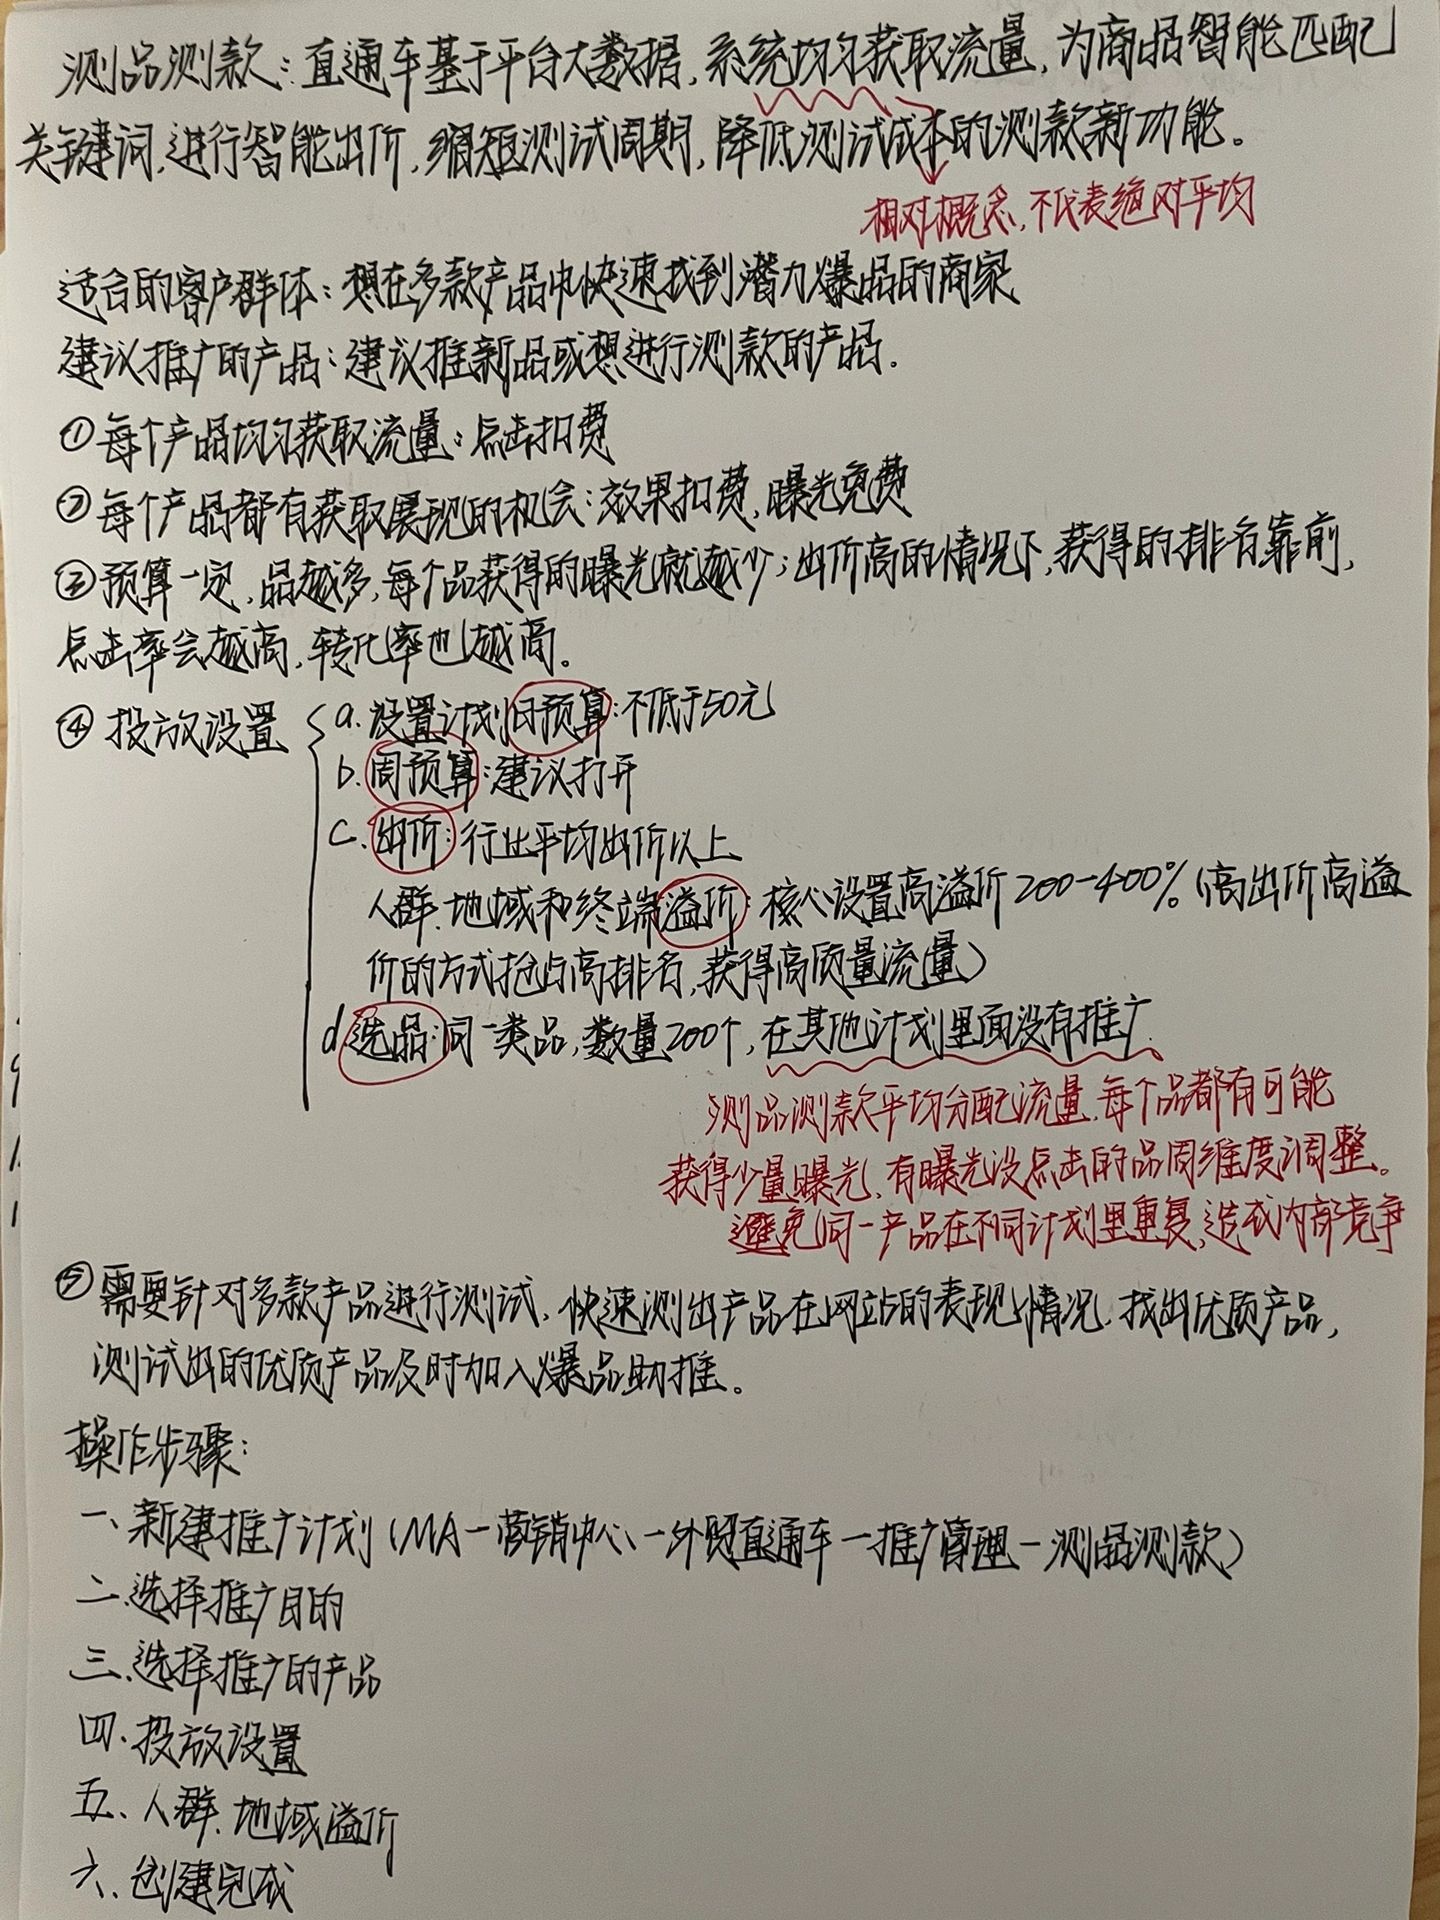 测品测款：直通车基于平台大数据，系统均匀获取流量，为商品智能匹配
关键词，进行智能出价，缩短测试周期，降低测试成本的测款新功能。
相对概念，不代表绝对平均
适合的客户群体：想在多款产品中快速找到潜力爆品的商家
建议推广的产品：建议推新品或想进行测款的产品.
①每个产品均匀获取流量：点击扣费
②每个产品都有获取展现的机会：效果扣费，曝光免费
③预算一定，品越多，每个品获得的曝光就越少；出价高的情况下，获得的排名靠前，
点击率会越高，转化率也越高。
④投放设置
a.设置计划日预算：不低于50元
b.周预算：建议打开
c.出价：行业平均出价以上
人群、地域和终端溢价：核心设置高溢价200-400%（高出价高溢
价的方式抢占高排名，获得高质量流量）
d.选品：同一类品，数量200个，在其他计划里面没有推广.
测品测款平均分配流量，每个品都有可能
获得少量曝光，有曝光没点击的品周维度调整。
避免同一产品在不同计划里重复，造成内部竞争
⑤需要针对多款产品进行测试，快速测出产品在网站的表现情况，找出优质产品，
测试出的优质产品及时加入爆品助推。
操作步骤：
一、新建推广计划（MA-营销中心-外贸直通车-推广管理-测品测款）
二、选择推广目的
三、选择推广的产品
四、投放设置
五、人群、地域溢价
六、创建完成